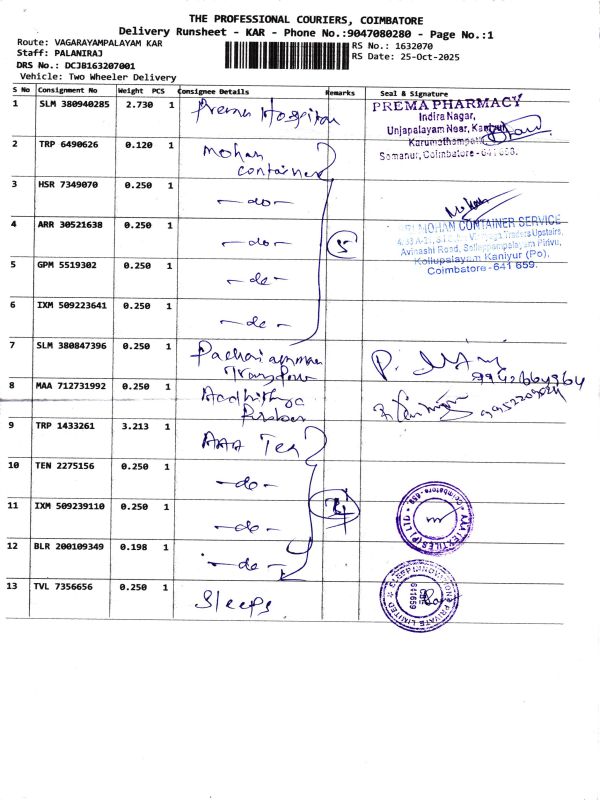 THE PROFESSIONAL COURIERS, COIMBATORE
Delivery Runsheet - KAR - Phone No.:9047080280 - Page No.:1
Route: VAGARAYAMPALAYAM KAR
RS No.: 1632070
Staff: PALANIRAJ
RS Date: 25-Oct-2025
DRS No.: DCJB163207001
Vehicle: Two Wheeler Delivery
S No Consignment No Weight PCS Consignee Details Remarks Seal & Signature
1 SLM 380940285 2.730 1 Prema Hospital
PREMA PHARMACY
Indira Nagar,
Unjapalayam Near, Kaniyur
Karumathampatti
Somanur, Coimbatore - 641 668.
2 TRP 6490626 0.120 1 Mohan
container
3 HSR 7349070 0.250 1 -do-
Mohan
4 ARR 30521638 0.250 1 -do- 5
SRI MOHAN CONTAINER SERVICE
Avinashi Road,
Kollupalayam Kaniyur (Po),
Coimbatore - 641 659.
5 GPM 5519302 0.250 1 -do-
6 IXM 509223641 0.250 1 -do-
7 SLM 380847396 0.250 1 Pachaiamman
Transport
P. Mani
9942664964
8 MAA 712731992 0.250 1 Aadhithya
9952209024
9 TRP 1433261 3.213 1 AAA Tex
10 TEN 2275156 0.250 1 -do-
11 IXM 509239110 0.250 1 -do- 4
AAA TEXTILES (P) LTD
Coimbatore - 659
12 BLR 200109349 0.198 1 -do-
13 TVL 7356656 0.250 1 Sleeps
SLEEP INNOVATIONS PRIVATE LIMITED
CBE
641659